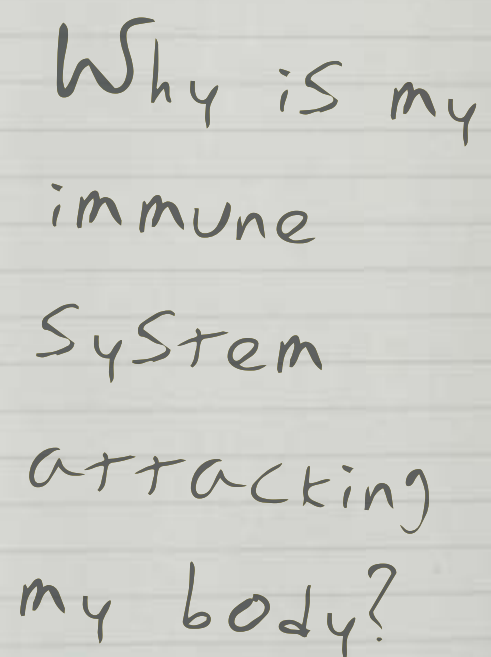 Why is my
immune
system
attacking
my body?